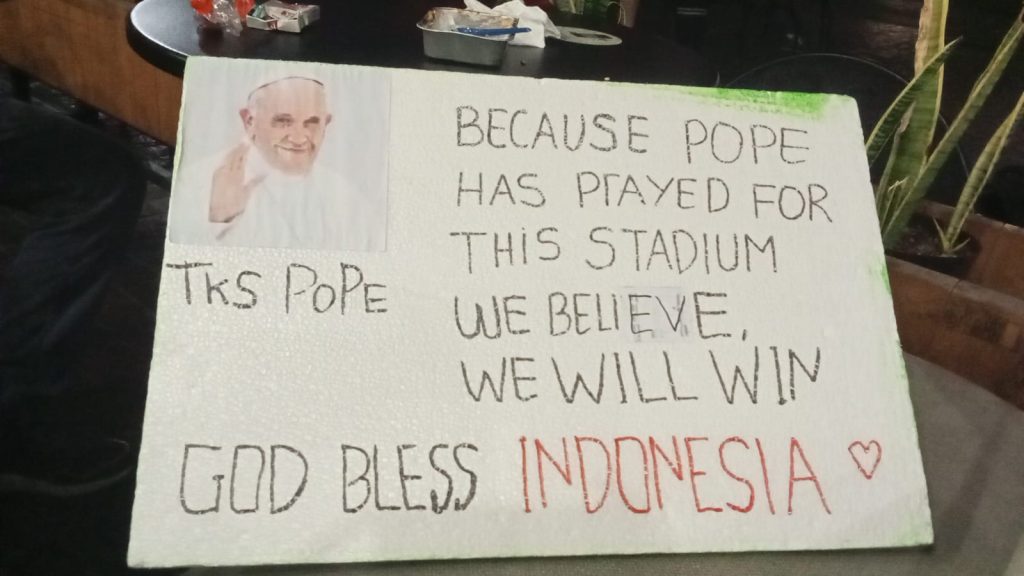 BECAUSE POPE
HAS PRAYED FOR
THIS STADIUM
WE BELIEVE,
WE WILL WIN
TKS POPE
GOD BLESS INDONESIA